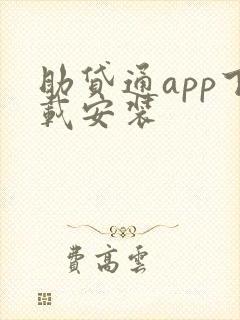 助贷通app下
载安装
費高雲